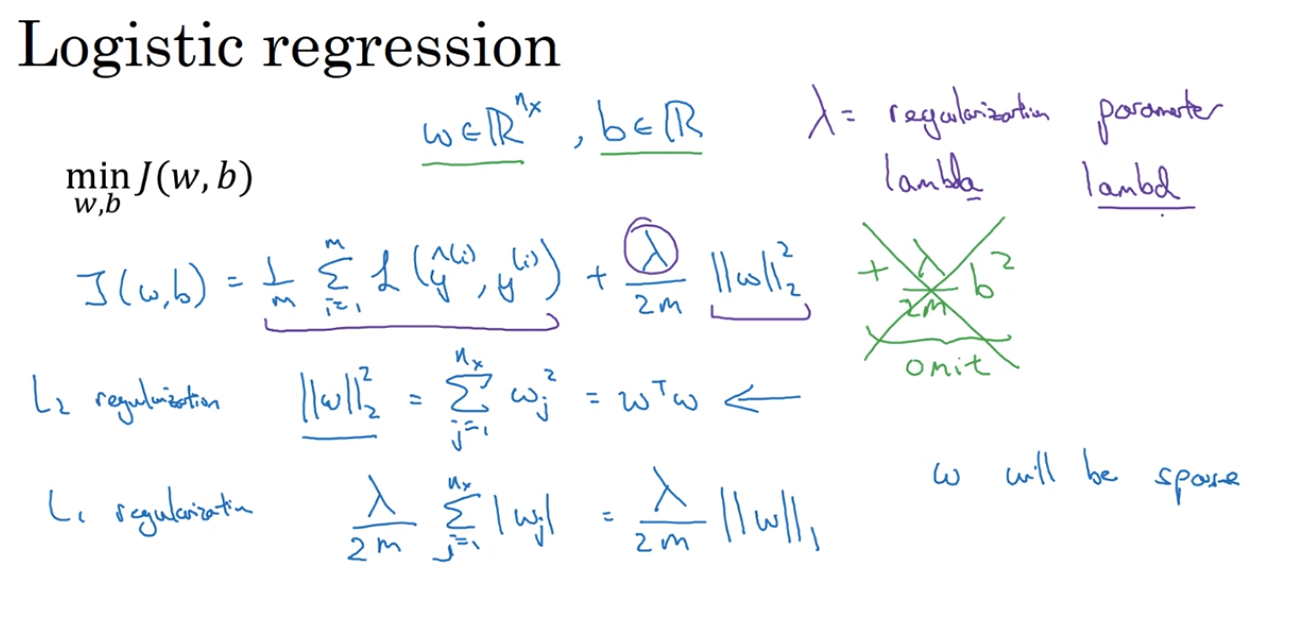 Logistic regression
w ∈ ℝ^{n_x}, b ∈ ℝ
λ = regularization parameter
lambda lambd
min_{w,b} J(w, b)
J(w,b) = 1/m Σ_{i=1}^{m} L(ŷ^{(i)}, y^{(i)}) + λ/2m ||w||_2^2 + λ/2m b^2
omit
L_2 regularization ||w||_2^2 = Σ_{j=1}^{n_x} w_j^2 = w^T w ←
w will be sparse
L_1 regularization λ/2m Σ_{j=1}^{n_x} |w_j| = λ/2m ||w||_1